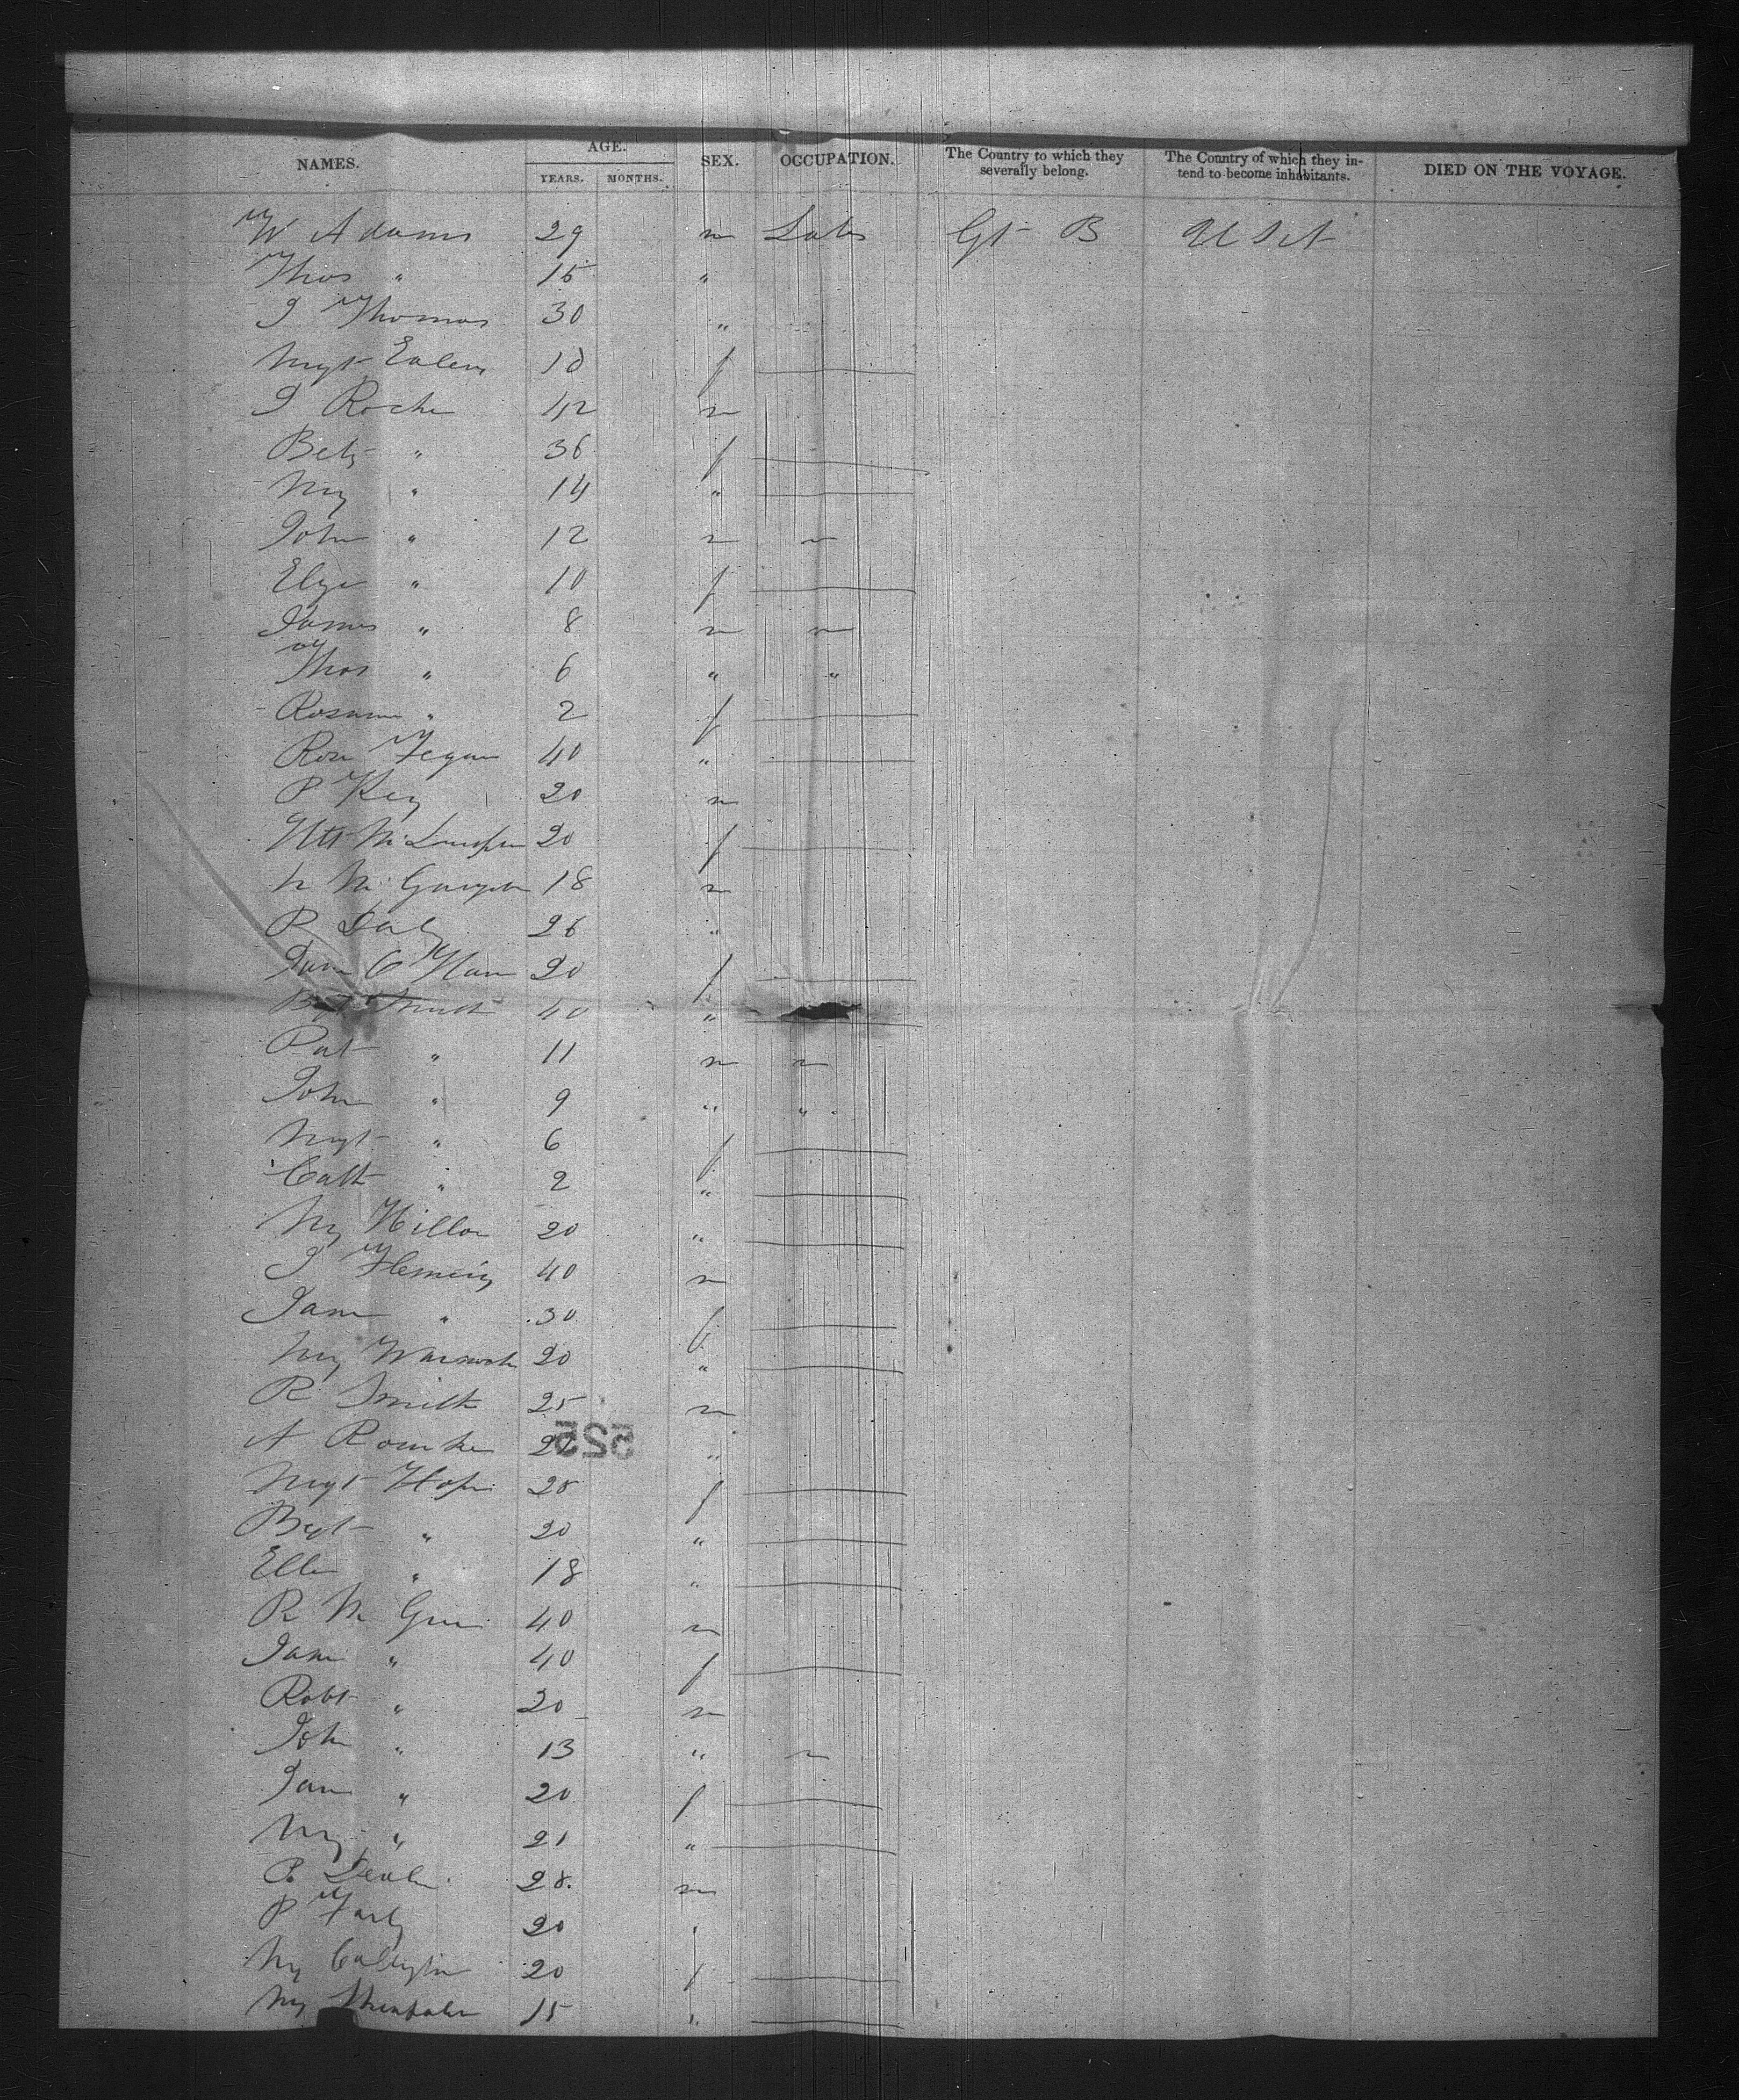 NAMES. AGE. YEARS. MONTHS. SEX. OCCUPATION. The Country to which they severally belong. The Country of which they intend to become inhabitants. DIED ON THE VOYAGE.
W Adams 29 m Labr Gt B U S A
Thos " 15 "
J Thomas 30 "
Mgt 18 f
J Roche 42 m
Bety " 36 f
My " 14 "
John " 12 m
Eliza " 10 f
James " 8 m
Thos " 6 " "
Rosanna " 2 f
Rose Fegan 40 "
P Key 20 m
20 f
18 m
P Daly 26 "
Jane O 20 f
Bgt Smith 40 "
Pat " 11 m
John " 9 " "
Mgt " 6 f
Cath " 2 "
My Hillon 20 "
J Fleming 40 m
Jane " 30 f
My Warnock 20 "
R Smith 25 m
A Rourke "
525
Mgt f
Bgt " 20 "
Ellen " 18 "
R Mc 40 m
Jane " 40 f
Robt " 20 m
John " 13 "
Jane " 20 f
My " 21 "
P 28 m
P Farly 20
My 20 f
My 15 "